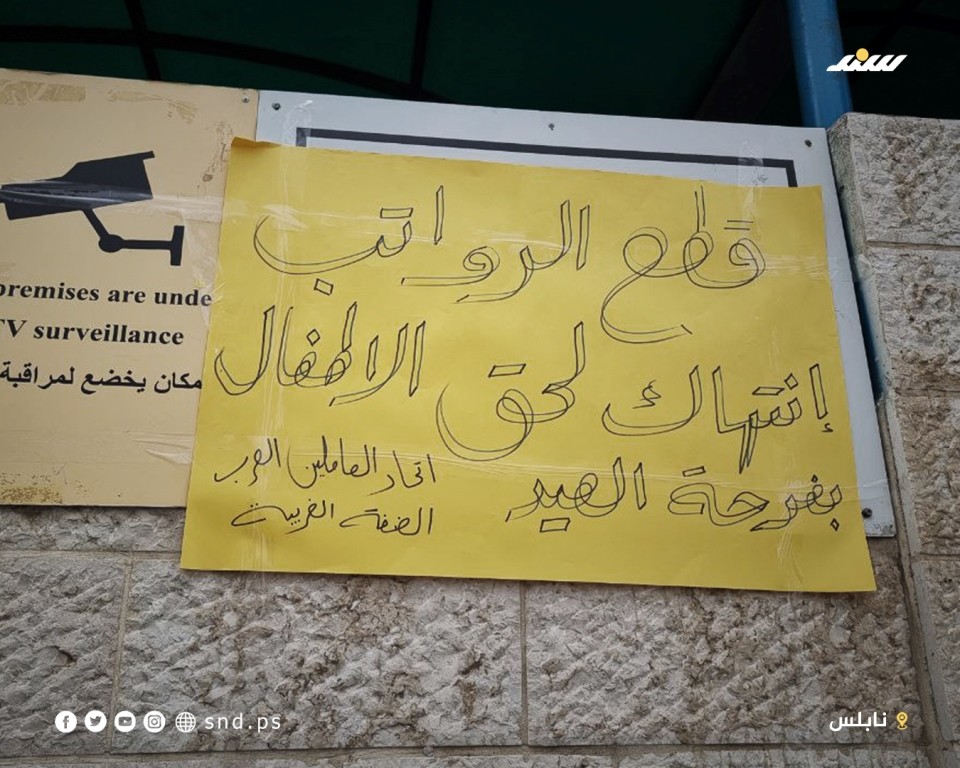 سند
premises are unde
TV surveillance
مكان يخضع لمراقبة
قطع الرواتب
إنتهاك لحق الاطفال
بفرحة العيد
اتحاد العاملين العرب
الضفة الغربية
snd.ps
نابلس